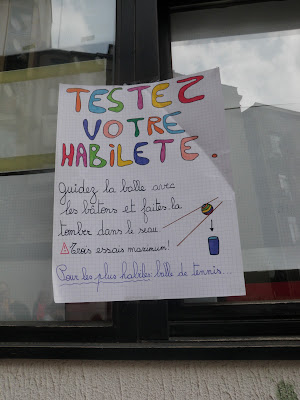 TESTEZ
VOTRE
HABILETÉ.
Guidez la balle avec
les bâtons et faites la
tomber dans le seau.
Trois essais maximum!
Pour les plus habiles: balle de tennis...